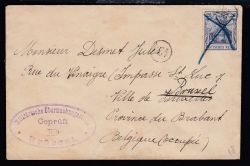 Monsieur Desmet Jules
Rue du Vinaigre / Impasse St Luc 7
Brussel
Ville de
Province du Brabant
Belgique (occupée)
Militärische Überwachungsstelle
Geprüft